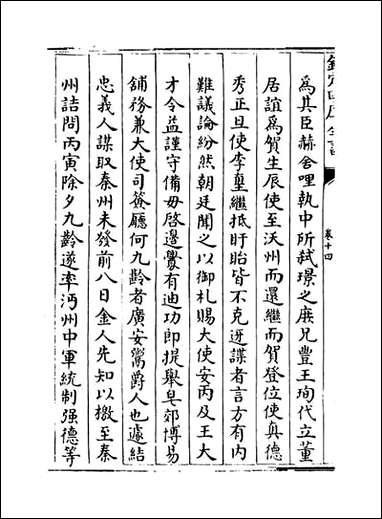 欽定四庫全書
卷十四
為其臣赫舎哩執中所弑璟之庶兄豐王珣代立董
居誼為賀生辰使至沃州而還繼而賀登位使真德
秀正旦使李𡌴繼抵盱眙皆不克迓諜者言方有内
難議論紛然朝廷聞之以御札賜大使安丙及王大
才令益謹守備毋啓邊釁有迪功郎提舉皂郊博易
舖務兼大使司簽廳何九齡者廣安鬻爵人也遽結
忠義人謀取秦州未發前八日金人先知以檄至秦
州詰問丙寅除夕九齡遂率沔州中軍統制强德等